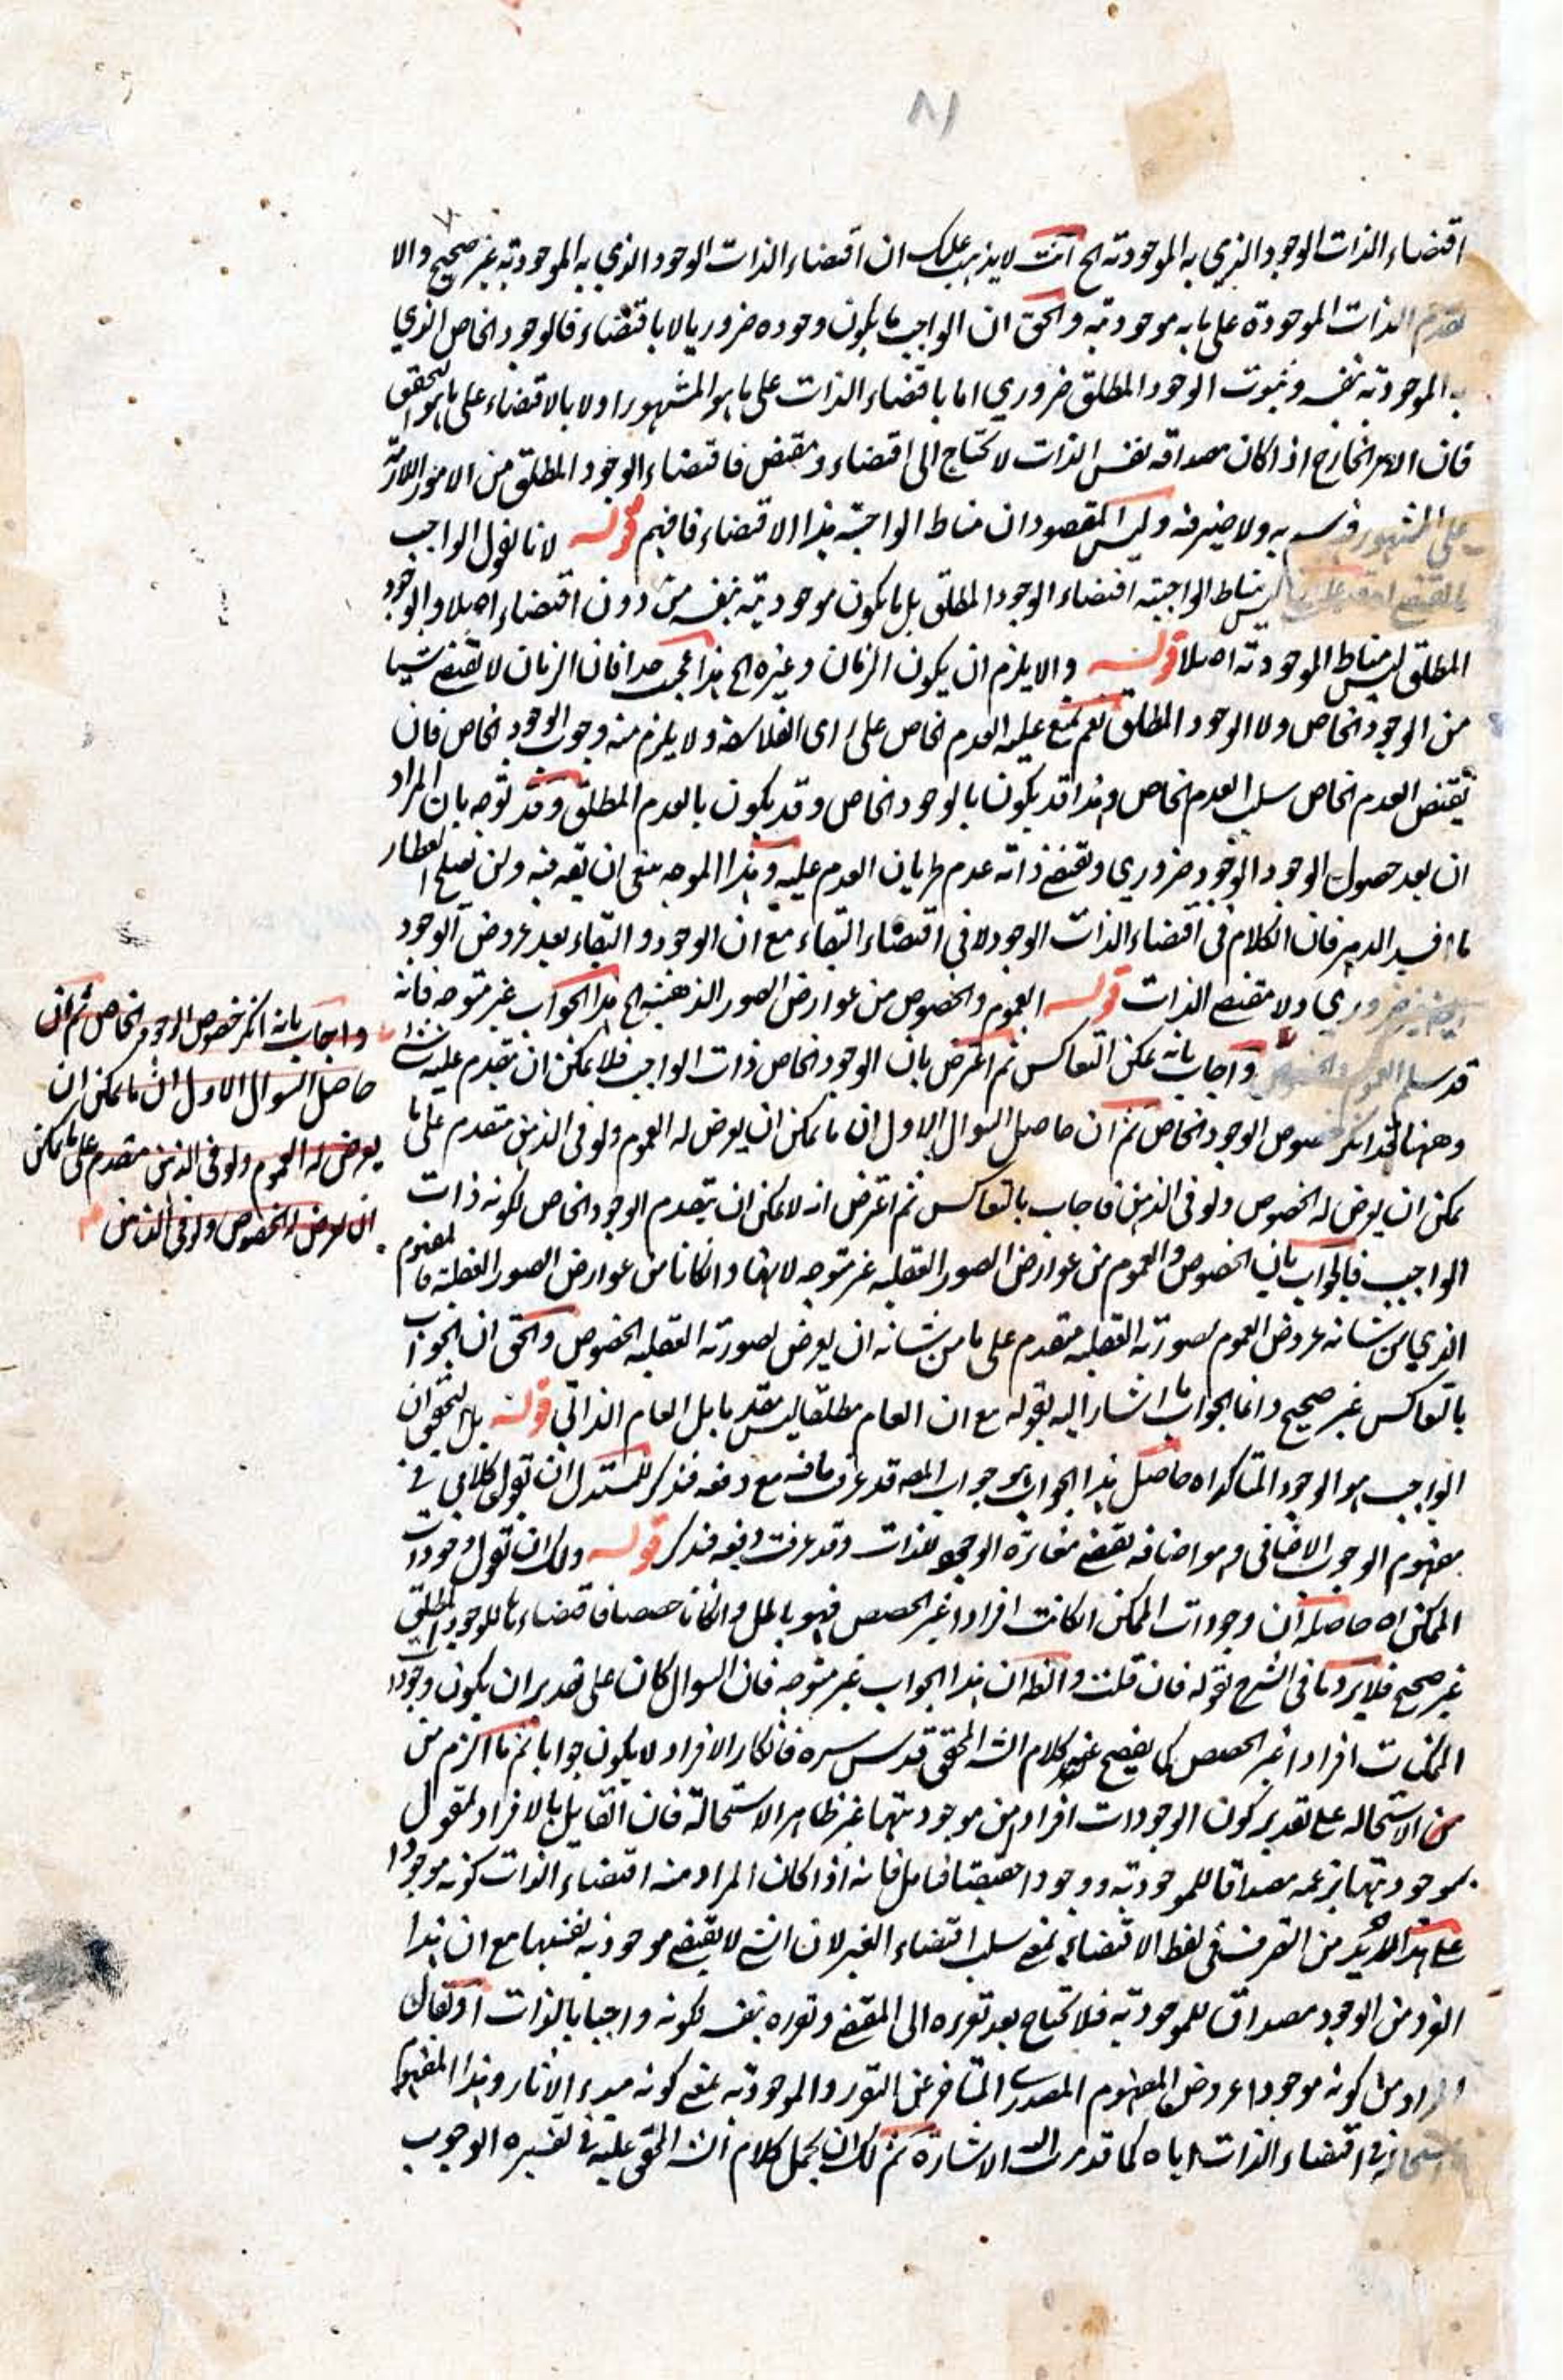 ٨١
اقتضاء الذات الوجود الذي به الموجودية الخ انت لا يذهب عليك ان اقتضاء الذات الوجود الذي به الموجودية غير صحيح والا
تقدم الذات الموجودة على ما به موجوديته والحق ان الواجب ما يكون وجوده ضروريا لا باقتضاء فالوجود الخاص الذي
به الموجودية بنفسه وثبوت الوجود المطلق ضروري اما باقتضاء الذات على ما هو المشهور اولا بالاقتضاء على ما هو التحقيق
فان الامر الخارج اذا كان مصداقه نفس الذات لا تحتاج الى اقتضاء ومقتض فاقتضاء الوجود المطلق من الامور اللازمة
على المشهور به ولا ضير فيه وليس المقصود ان مناط الواجبية هذا الاقتضاء فافهم قوله لانا نقول الواجب
ليس مناط الواجبية اقتضاء الوجود المطلق بل ما يكون موجوديته بنفسه من دون اقتضاء اصلا والوجود
المطلق ليس مناط الموجودية اصلا قوله والا يلزم ان يكون الزمان وغيره الخ هذا عجب جدا فان الزمان لا يقتضي شيئا
من الوجود الخاص ولا الوجود المطلق نعم يمتنع عليه العدم الخاص على راى الفلاسفة ولا يلزم منه وجوب الوجود الخاص فان
نقيض العدم الخاص سلب العدم الخاص وهذا قد يكون بالوجود الخاص وقد يكون بالعدم المطلق وقد توجه بان المراد
ان بعد حصول الوجود الوجود ضروري ويقتضي ذاته عدم طريان العدم عليه وهذا الموجه ينبغي ان ولن يصلح العطار
ما افسد الدهر فان الكلام في اقتضاء الذات الوجود لا في اقتضاء البقاء مع ان الوجود والبقاء بعد عروض الوجود
ضروري ولا مقتضى الذات قوله العموم والخصوص من عوارض الصور الذهنية الخ هذا الجواب غير متوجه فانه
قد سلم العموم واجاب بانه يمكن التعاكس ثم اعترض بان الوجود الخاص ذات الواجب فلا يمكن ان يتقدم عليه شئ
وههنا خصوص الوجود الخاص ثم ان حاصل السوال الاول ان ما يمكن ان يعرض له العموم ولو في الذهن متقدم على ما
يمكن ان يعرض له الخصوص ولو في الذهن فاجاب بالتعاكس ثم اعترض انه لا يمكن ان يتقدم الوجود الخاص لكونه ذات
الواجب فالجواب بان الخصوص والعموم من عوارض الصور العقلية غير متوجه لانهما وان كانا من عوارض الصور العقلية فالمفهوم
الذي من شانه عروض العموم لصورته العقلية متقدم على ما من شانه ان يعرض لصورته العقلية الخصوص والحق ان الجواب
بالتعاكس غير صحيح وانما الجواب ما اشار اليه بقوله مع ان العام مطلقا ليس مقدما بل العام الذاتي قوله بل التحقيق ان
الواجب هو الوجود المتاكد اه حاصل هذا الجواب هو جواب المصه قد عرفت ما فيه مع دفعه فتذكر للمستدل ان يقول كلامي في
مفهوم الوجوب الاضافي وهو اضافة يقتضي مغايرة الوجود للذات وقد عرفت دفعه فتذكر قوله ولك ان تقول وجودات
الممكن اه حاصله ان وجودات الممكن ان كانت افرادا غير الحصص فهو باطل وان كانت حصصا فاقتضاءها للوجود المطلق
غير صحيح فلا يرد ما في الشرح بقوله فان قلت والظ ان هذا الجواب غير متوجه فان السوال كان على تقدير ان يكون وجودا
الممكنات افرادا غير الحصص كما يفصح عنه كلام الش المحقق قدس سره فانكار الافراد لا يكون جوابا ثم ما الزم من
من الاستحالة على تقدير كون الوجودات افراد من موجوديتها غير ظاهر الاستحالة فان القايل بالافراد يقول
بموجوديتها بزعمه مصداقا للموجودية ووجودا حقيقيا فتامل فانه اذا كان المراد منه اقتضاء الذات كونه موجودا
على هذا لابد من التصرف في لفظ الاقتضاء بمعنى سلب اقتضاء الغير لان الشئ لا يقتضي موجوديته بنفسها مع ان هذا
الفرد من الوجود مصداق للموجودية فلا تحتاج بعد تقرره الى المقتضي وتقرره بنفسه لكونه واجبا بالذات او يقال
المراد من كونه موجودا عروض المفهوم المصدري المتاخر عن التقرر والموجودية بمعنى كونه مبدء الاثار وهذا المفهوم
في اقتضاء الذات اياه كما قد مرت اليه الاشارة ثم لك ان تحمل كلام الش المحقق عليه في تفسيره الوجوب
واجاب بانه انكر خصوص الوجود الخاص ثم ان
حاصل السوال الاول ان ما يمكن ان
يعرض له العموم ولو في الذهن متقدم على ما يمكن
ان يعرض له الخصوص ولو في الذهن